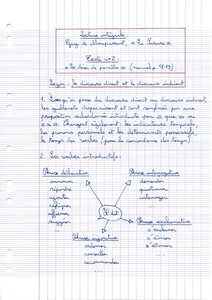 Lecture intégrale
Guy de Maupassant, « La Parure ».
Texte n°2
« Le choix de paraître » (manuel p. 17-18)
Leçon : le discours direct et le discours indirect
1. Lorsqu'on passe du discours direct au discours indirect,
les guillemets disparaissent et sont remplacés par une
proposition subordonnée introduite par « que » ou
« si ». Changent également : les indicateurs temporels,
les pronoms personnels et les déterminants possessifs,
le temps des verbes (pour la concordance des temps).
2. Les verbes introductifs :
Phrase déclarative
annoncer
répondre
ajouter
répliquer
affirmer
suggérer
Phrase interrogative
demander
questionner
interroger
Il dit
Phrase injonctive
ordonner
conseiller
recommander
Phrase exclamative
s'exclamer
s'écrier
s'étonner